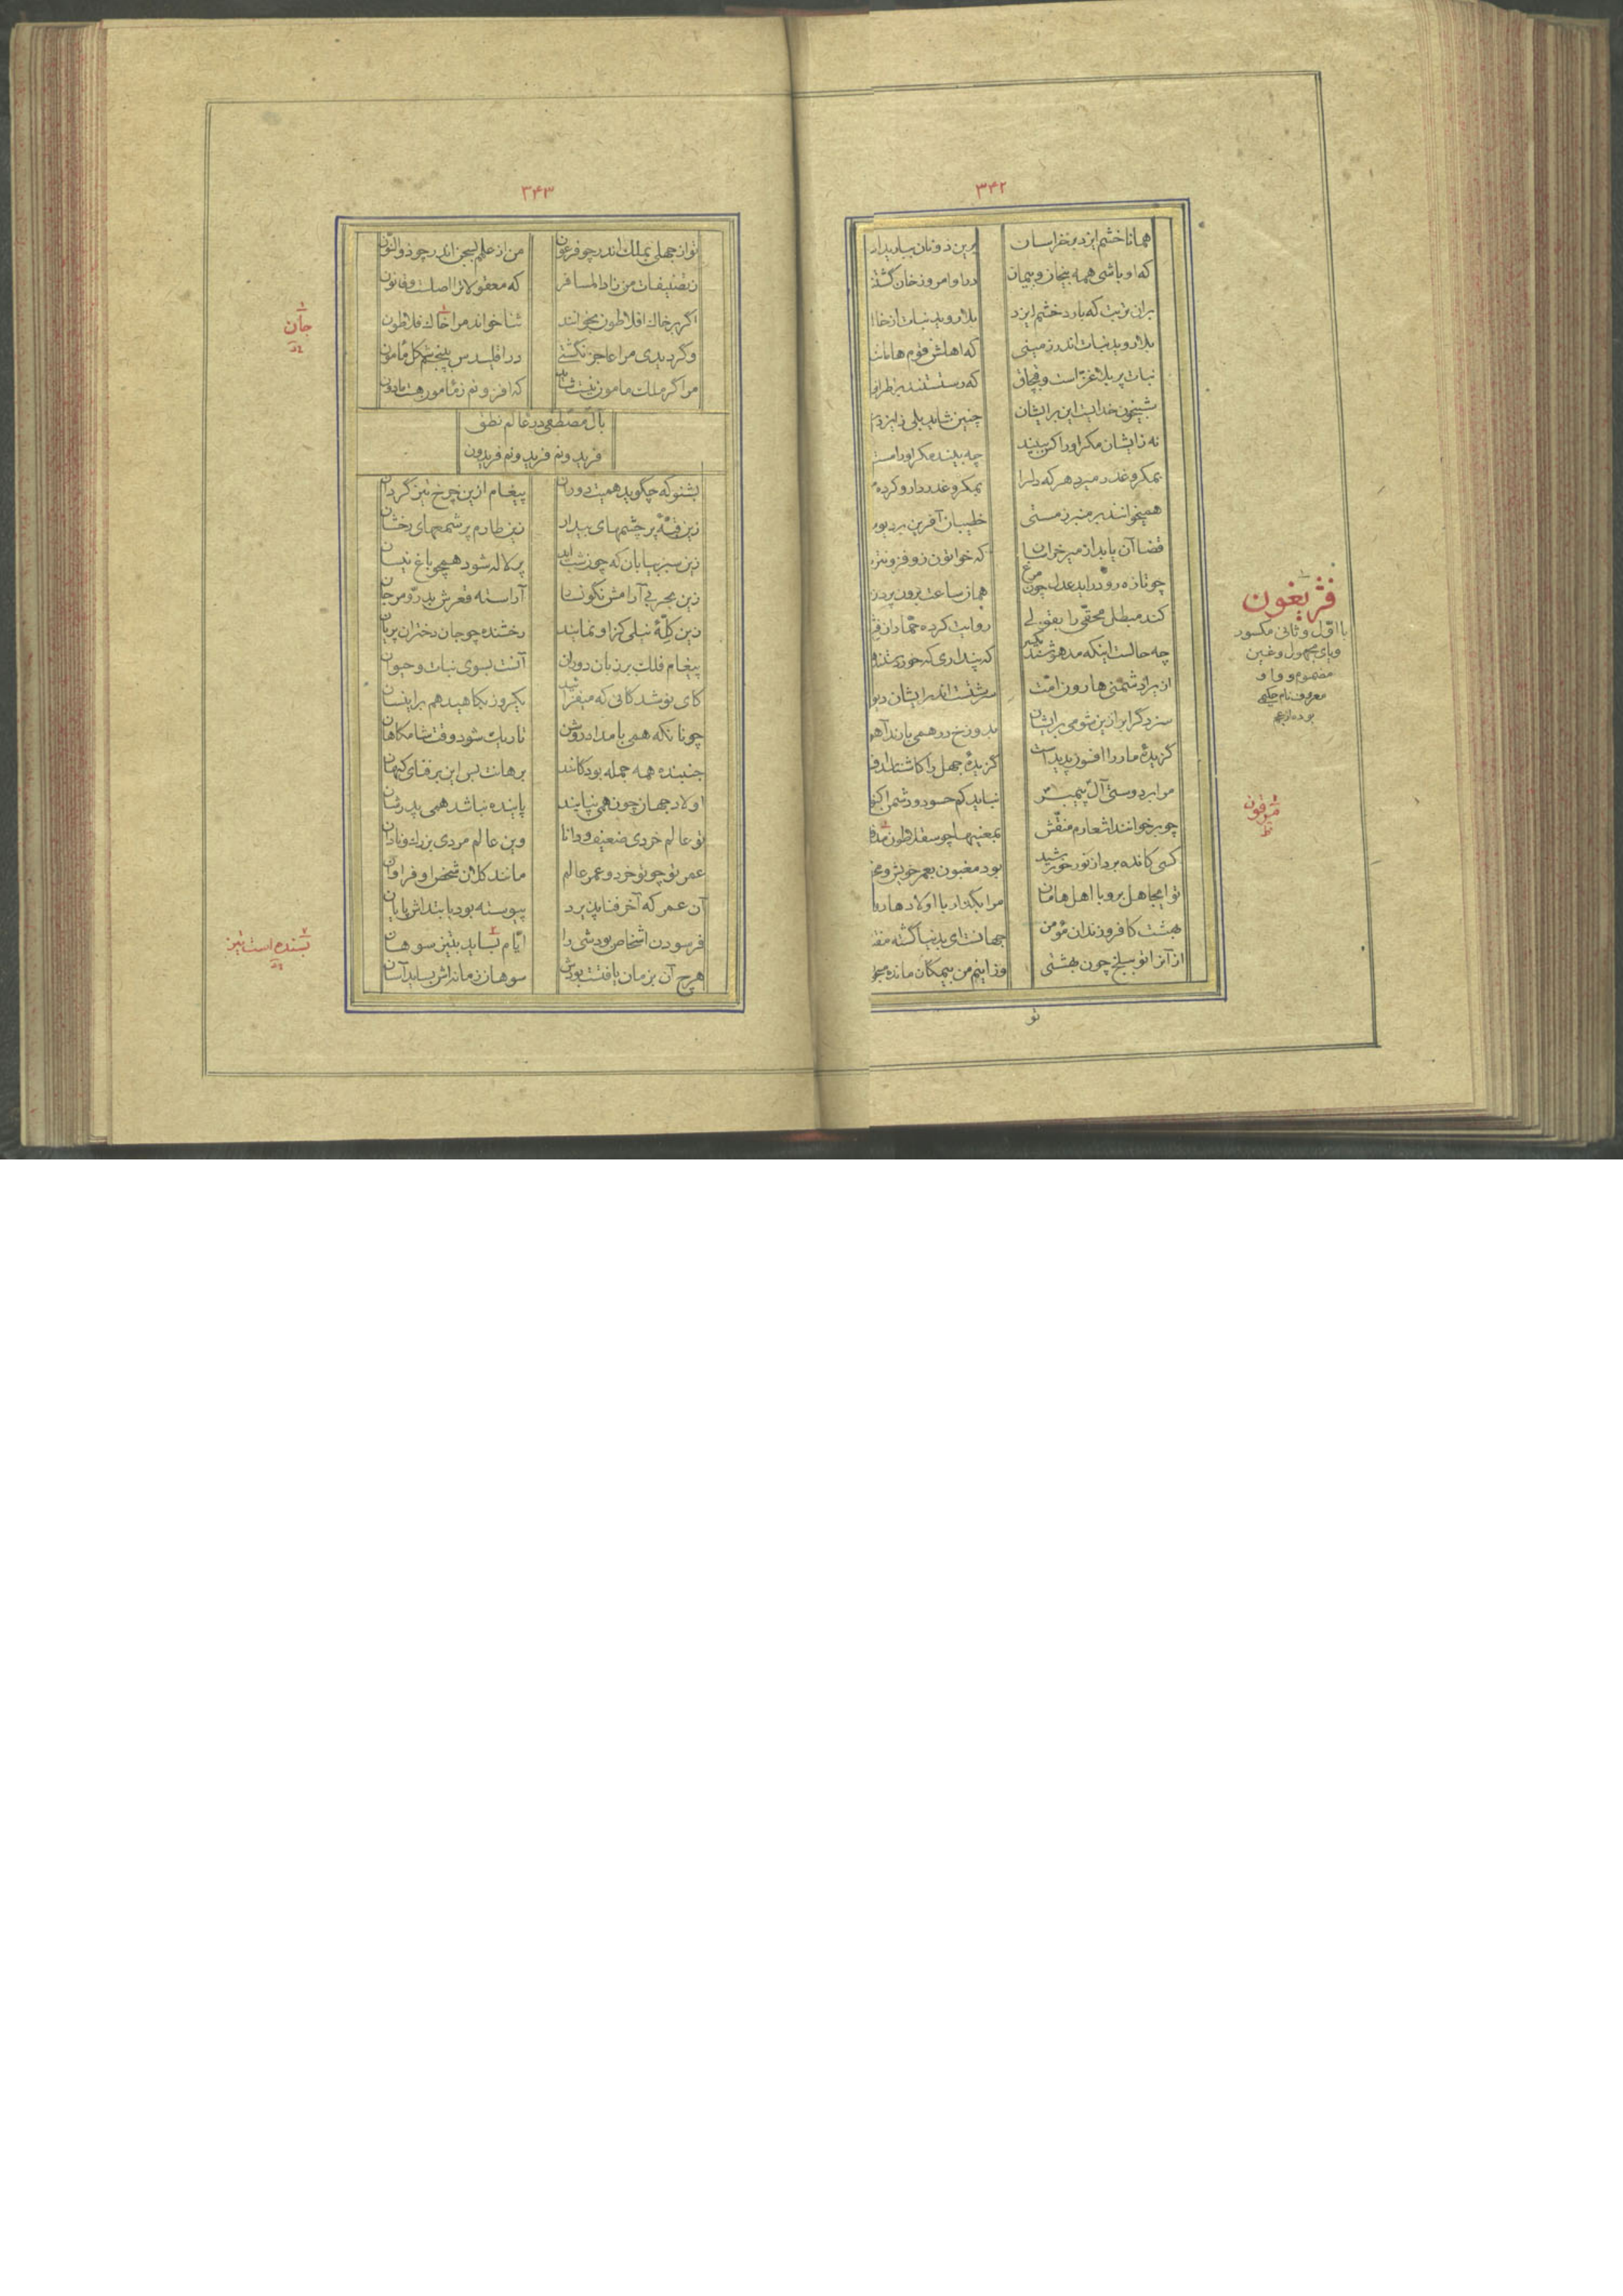 ۳۴۲
همانا خشم ایزد بر خراسان برین دونان ببارید از
که اوباشی همه بیخان و بیمان درو امروز خان گشتند
بران تربت که بارد خشم ایزد بلا روید نبات از خا
بلا روید نبات اندر زمینی که اهلش قوم هامانند
نبات پر بلا غز است و قپچاق که رستستند بر اطراف
شبیخون خدایست این بر ایشان چنین شاید بلی ز ایزد
نه ز ایشان مکر او را کس ببیند چه بیند مکر او را مست
بمکر و غدر میرد هر که دلرا بمکر و غدر دارو کرده
همیخوانند بر منبر ز مستی خطیبان آفرین بر دیو
قضا آن یابد از میر خراسان که خواتون زو فزونتر
چو تازه رو در اید عدل چون مرغ هم از ساعت برون پرد ز
کند مبطل محقی را بقولی روایت کرده حماد از
چه حالست اینکه مدهوشند یکسر که پنداری که خوردستند
از یرا دشمنی هارون امت سرشتست اندر ایشان دیو
سزد گر ابر ازین شومی بر ایشان بدوزخ در همی بارند
گزیدهٔ مار را افسون پدید است گزیدهٔ جهل را که شناسد
مرا بر دوستی آل پیمبر نباید کم حسود و دشمن اکنو
چو برخوانند اشعارم منقش بمعنیها چو سقلاطون
کسی کانده برد از نور خورشید بود مغبون بعمر خویش و
تو ایجاهل برو با اهل هامان مرا بگذار با اولاد هارو
بهشت کافر و زندان مؤمن جهانست ای بدنیا گشته مفتو
از آنرا تو ببلخ چون بهشتی وز اینم من بیمکان مانده
تو
فثریغون
با اول و ثانی مکسور
ویای مجهول وغین
مضموم و واو
معروف نام حکیمی
بوده از عجم
۳۴۳
تو از جهلی بملک اندر چو فرعون من از علم بسجن اندر چو ذوالنون
ز تصنیفات من زاد المسافر که معقولات را اصلست و قانون
اگر بر خاک افلاطون بخوانند ثنا خواند مرا خاک فلاطون
و گر دیدی مرا عاجز نگشتی در اقلیدس بپنجم شکل مأمون
مرا گر ملک مامون نیست شاید که افزونم ز مأمور هست مادون
بآل مصطفی در عالم نطق
فریدونم فریدونم فریدون
بشنو که چگوید همیت دوران پیغام ازین چرخ تیز گردان
زین قبهٔ پر چشمهای بیدار زین طارم پر شمعهای رخشان
زین سبز بیابان که چون شب اید پر لاله شود همچو باغ نیسان
زین بحر بی آرامش نگونسار آراسته قعرش بدر و مرجان
زین کلهٔ نیلی کز او نمایند رخشنده چو جان دختران پریان
پیغام فلک بر زبان دوران آنست بسوی نبات و حیوان
کای نوشدگانی که میفزائید یکروز بکاهید هم براینسان
چونانکه همی بامداد روشن تاریک شود وقت شامگاهان
جنبنده همه جمله بودگانند برهانت بس این بر فنای کیهان
اولاد جهان چون همی نپایند پاینده نباشد همی پدرشان
تو عالم خردی ضعیف و دانا وین عالم مردی بزرگ و نادان
عمر تو چو تو خرد و عمر عالم مانند کلان شخص او فراوان
آن عمر که آخر فنا پذیرد پیوسته بود با ابتداش پایان
فرسودن اشخاص بودشی را ایام بساید بتیز سوهان
هرچ آن بزمان یافتست بودش سوهان زمانه‌اش بساید آسان
جان
بسنده است تیز